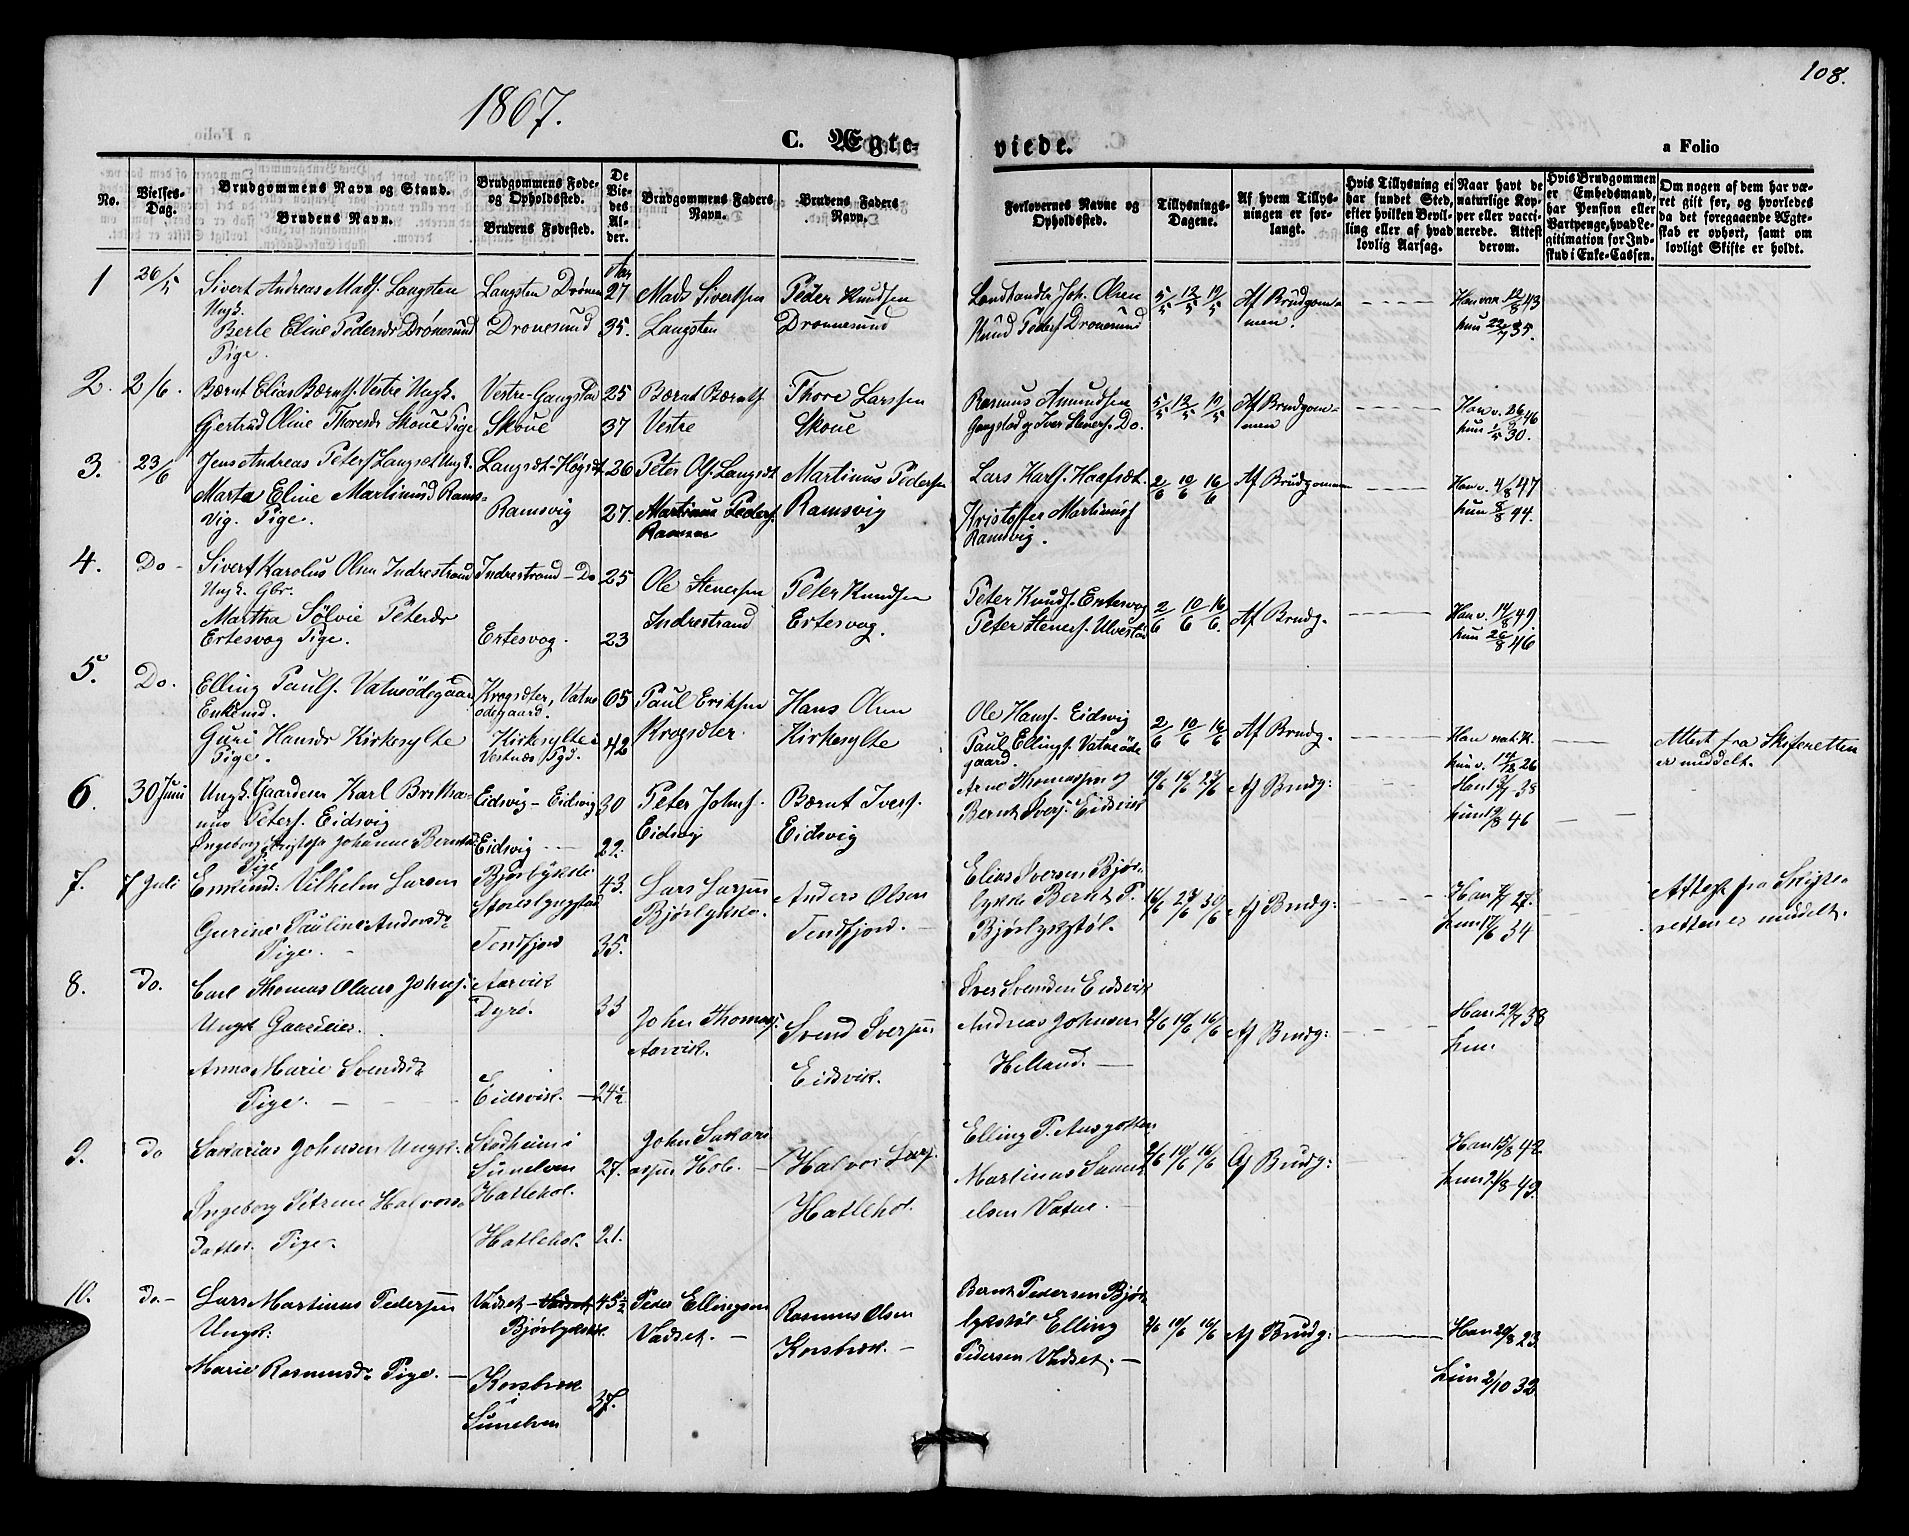 108.
1867.
C. Ægte-
viede.
a Folio
No.
Vielses-Dag.
Brudgommens Navn og Stand.
Brudens Navn.
Brudgommens Føde- og Opholdssted.
Brudens Fødested.
De Viedes Alder.
Brudgommens Faders Navn.
Brudens Faders Navn.
Forlovernes Navne og Opholdssted.
Tillysnings-Dagene.
Af hvem Tillysningen er forlangt.
Hvis Tillysning ei har fundet Sted, efter hvilken Bevilling eller af hvad lovlig Aarsag.
Naar havt de naturlige Kopper eller vaccinerede. Attest derom.
Hvis Brudgommen er Embedsmand, har Pension eller Vartpenge, hvad Legitimation for Indskud i Enke-Cassen.
Om nogen af dem har været gift før, og hvorledes da det foregaaende Ægteskab er ophørt, samt om lovligt Skifte er holdt.
1 26/5 Sivert Andreas Mads. Langsten Langsten Drønen Aar 27 Mads Sivertsen Peder Knudsen Joh. Olsen 5/5 12/5 19/5 Af Brudgom- Han vac. 12/8 43
Ungk.
Berte Eline Pedersdr Drønesund Dronesund 35. Langsten Dronnesund Knud Peders. Dronesund men. hun 22/7 35.
Pige.
2. 2/6. Bernt Elias Bernts. Vestre Ungk. Vestre-Gangstad 25 Bernt Bernts. Thore Larssen Rasmus Amundsen 5/5 12/5 19/5 Af Brudgom- Han v. 26/8 46
Gjertrud Oline Thoresdr Skoue Pige Skoue 37 Vestre Skoue Gangstad og Iver Steners. Do. men hun 1/5 30.
3. 23/6 Jens Andreas Peters. Langsæt Ungk. Langsæt-Høgset 26 Peter Ols. Langsæt Martinus Pedersen Lars Karls. Haafsæt. 2/6 10/6 16/6 Af Brudgommen Han v. 4/8 47
Marta Eline Martinusd Rams- Ramsvig 27. Martinus Peders. Ramsvig Kristoffer Martinus. hun 8/8 44.
vig. Pige. Ramsvig.
4. Do - Sivert Karolus Olsen Indrestrand Indrestrand - Do 25 Ole Stenersen Peter Knudsen Peter Knuds. Ertesvog 2/6 10/6 16/6. Af Brudg. Han v. 14/8 49.
Ungk. Gbr.
Martha Sølvie Petersdr Indrestrand Ertesvog. Peter Steners. Ulvestad hun 26/8 46
Ertesvog Pige. Ertesvog. 23
5. Do. Elling Pauls. Vatneødegaard Krogsæter, Vatne- 65 Paul Eriksen Hans Olsen Ole Hans. Eidsvig 2/6 10/6 16/6 Af Brudg.
Enkemd. ødegaard.
Guri Hansdr Kirkesylte Kirkesylte i 42 Krogsæter. Kirkesylte Paul Ellings. Vatneøde Han nat. K. Attest fra Skifteretten
Pige. Vestnæs Pgd. gaard. hun v. 14/12 26 er meddelt.
6. 30 Juni Ungk. Gaardeier Karl Peters. Eidsvig Eidsvig - Eidsvig 30 Peter Johns. Bernt Ivers. Arne Thomassen og 10/6 16/6 23/6 Af Brudg: Han 38
Eidsvig Eidsvig Bernt Ivers. Eidsvik
Ingeborg Johanne Berntsd. Eidsvig 22. hun 19/8 46
Pige
7. 7 Juli Enkemd: Vilhelm Larsen Bjørlykke 43. Lars Larsen Anders Olsen Elias Iversen Bjør- 16/6 23/6 30/6 Af Brudg: Han 28. Attest fra Skifte-
Storelyngstad Bjørlykke. Tenfjord. - lykke Bernt P.
Gurine Pauline Andersdr Tenfjord 35. Bjørlykstøl. hun 17/6 34 retten er meddelt.
Pige. -
8. Do. Carl Thomas Olaus Johns. Aarvik Iver Svendsen Eidsvik
Ungk. Gaardeier. Dyrø. 33 John Thomas. Svend Iversen Andreas Johnsen 2/6 10/6 16/6 Af Brudg: Han 29/7 38
Aarvik. Helland. - hun
Anna Marie Svendsdr Eidsvik.
Pige. - Eidsvik. - 24½
9. Do Sakarias Johnsen Ungk. Stadheim i John Sakari Halvor Lars. Elling P. Ansgotten 2/6 10/6 16/6 Af Brudg: Han 15/8 42.
Sunelven 27. assen Hole. Martinus Samu- hun 21/8 49.
Hatlehol. Hatlehol. elsen Vatne.
Ingeborg Petrine Halvors-
datter. Pige. Hatlehol. 21.
10. Do. - Lars Martinus Pedersen Vadset - Vadset 45½ Peder Ellingsen Rasmus Olsen Bernt Pedersen Bjør-
Ungk: Bjørlykstøl. Vadset. - Korsbrek. - lykstøl Elling 2/6 10/6 16/6 Af Brudg: Han 20/8 23.
Marie Rasmusdr Pige. - Korsbrek 37. Pedersen Vadset. - hun 2/10 32
i Sunelven